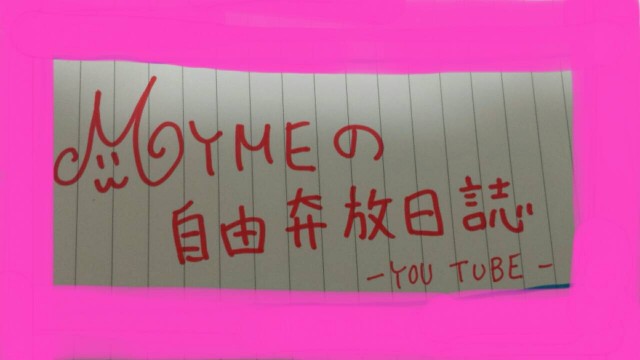 MYMEの
自由奔放日誌
-YOU TUBE-